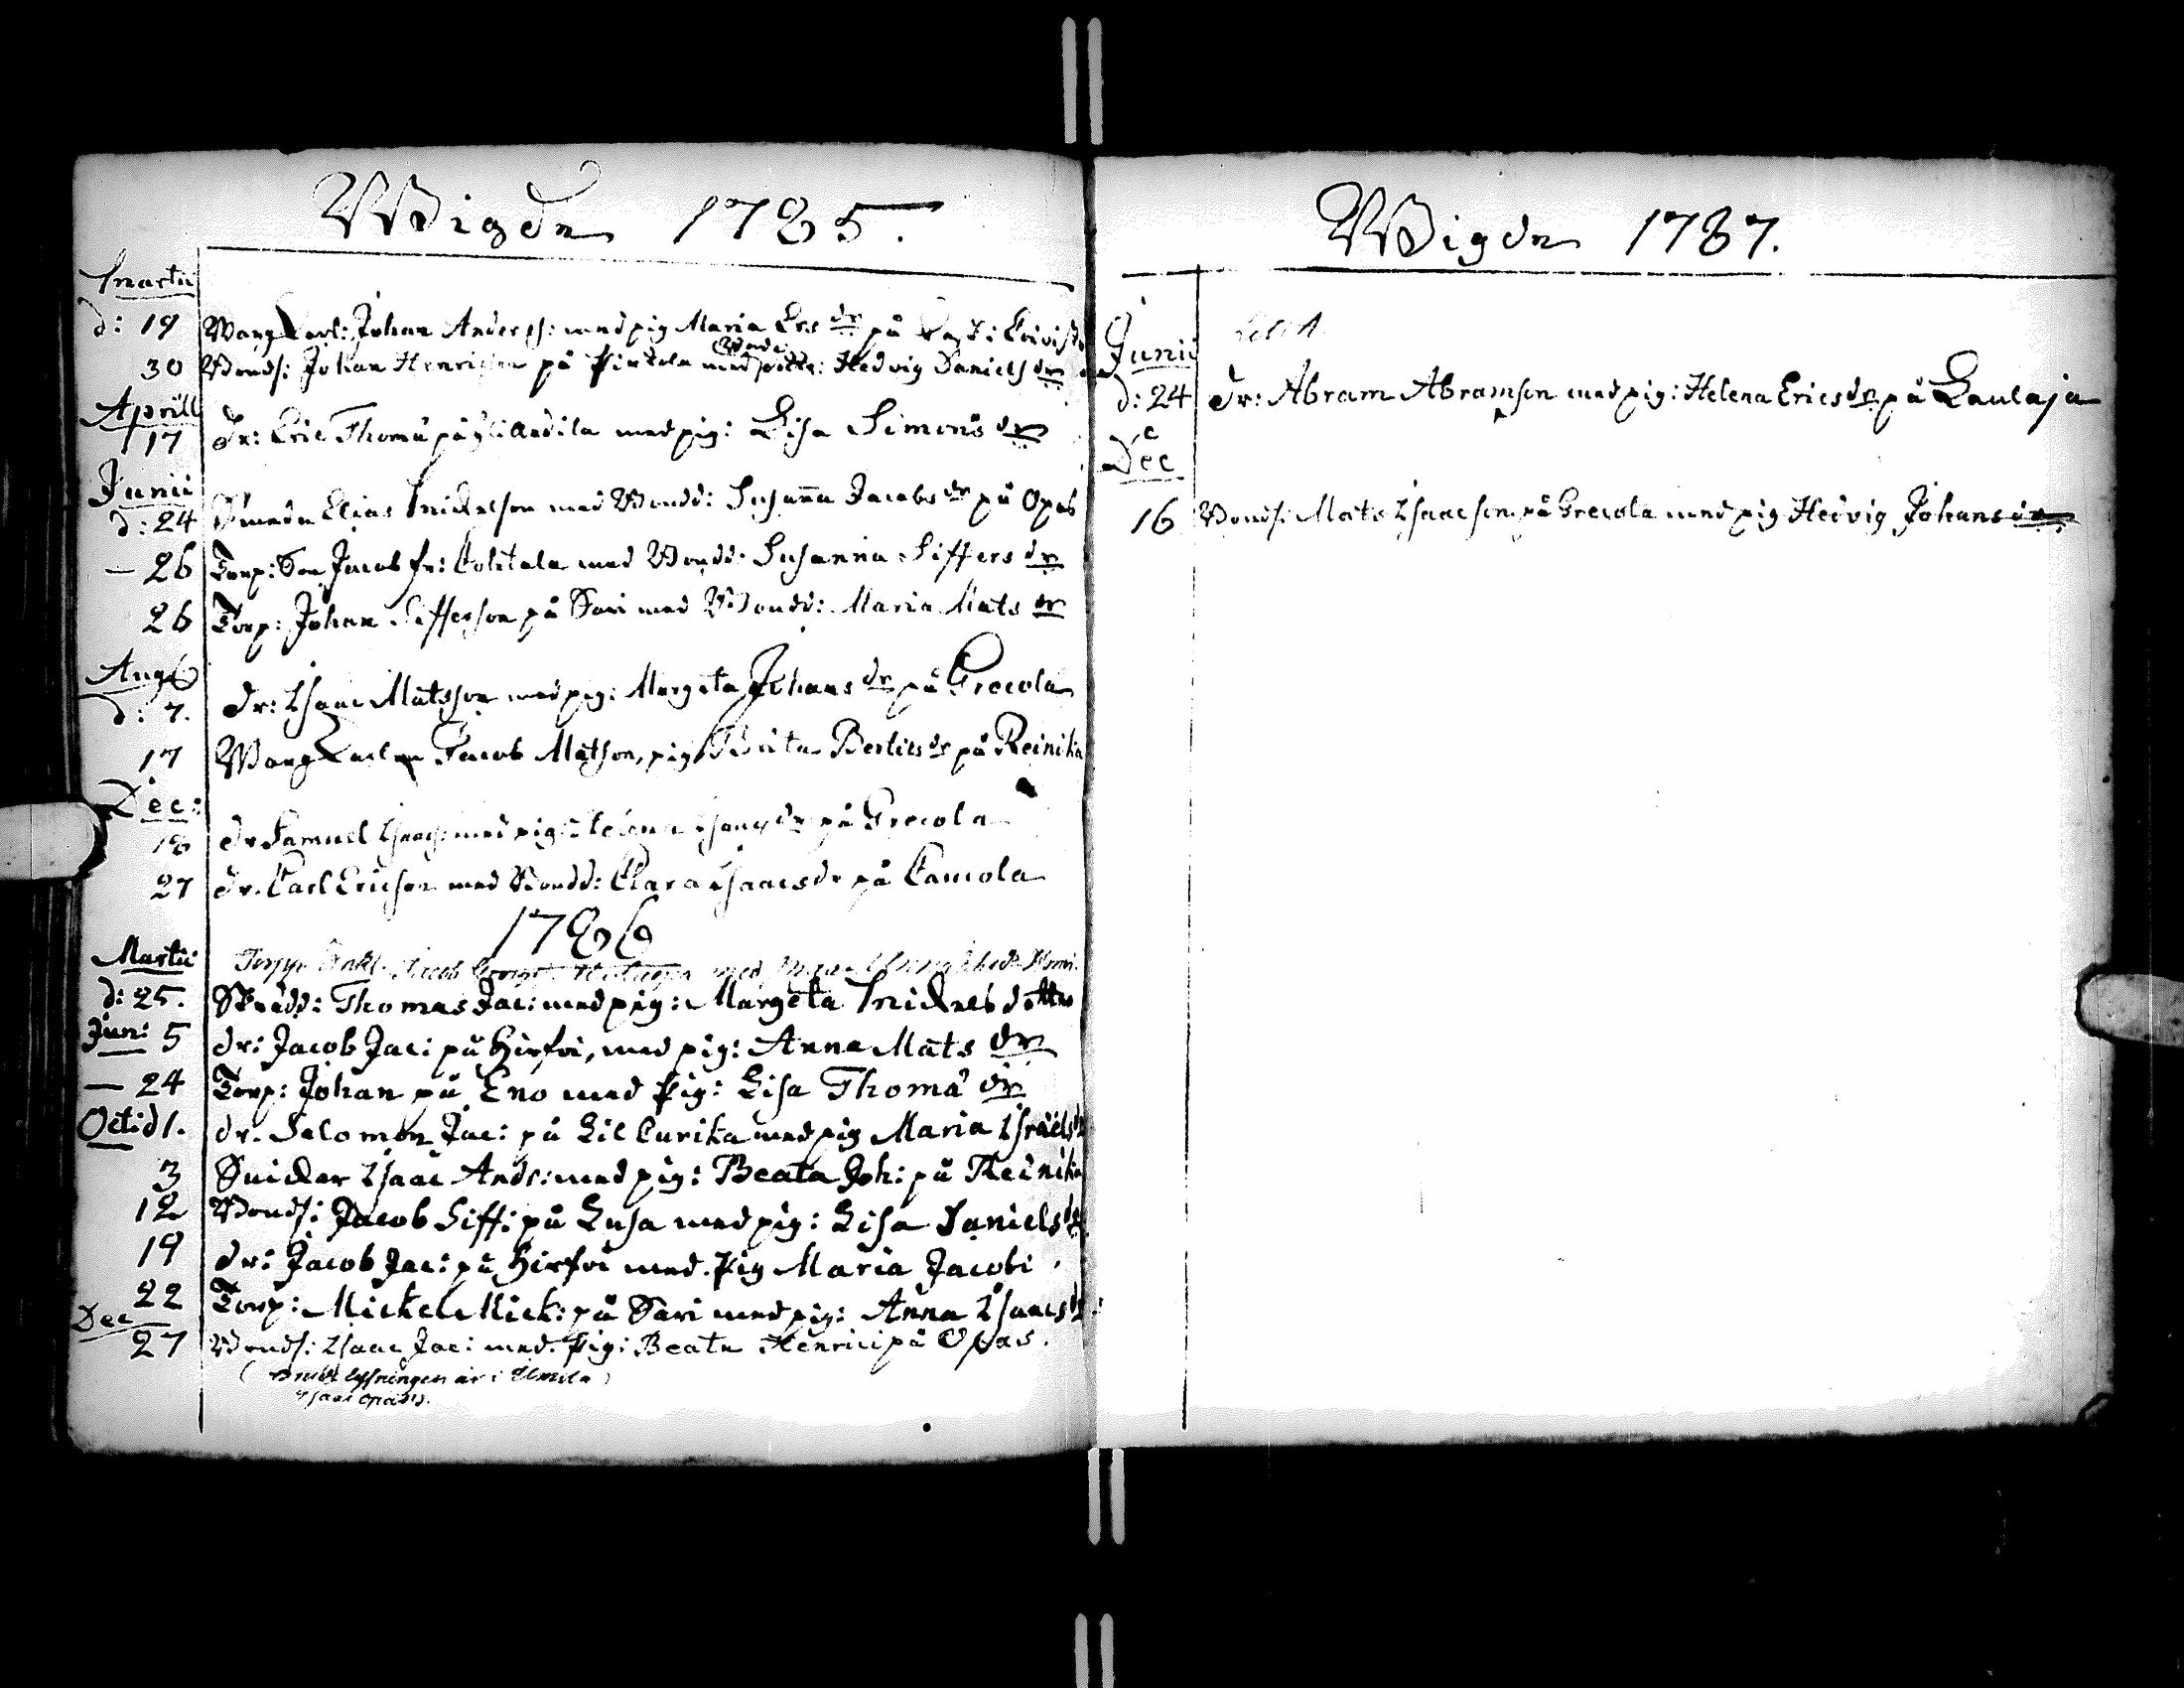 Wigde 1785.
Martii
d: 19 Johan Anderss: med pig Maria Ers dr på
30 Bonds: Johan Henricson på Pirkola med Hedvig Daniels dr
Aprill
17 dr: Eric Thomæ på med pig: Lisa Simons dr
Junii
d: 24 Smeden Elias Mickelson med Bondd: Susanna Jacobs dr på Opas
— 26 Torp: Son Jacob fr: med Bondd: Susanna Siffers dr
26 Torp: Johan Sifferson på Sari med Bondd: Maria Mats dr
Aug
d: 7. dr: Isaac Matsson med pig: Margeta Johans dr på Grecola
17 Jacob Matson, pig Beata Bertils dr på Reinika
Dec:
18 dr Samuel Isacs: med pig: Helena dr på Grecola
27 dr. Carl Ericson med Bondd: Clara Isaacs dr på Camola
1786
Martii Jacob med
d: 25. Skrädd: Thomas Jac: med pig: Margeta Mickels dotter
Jun: 5 dr: Jacob Jac: på Hirfvi, med pig: Anna Mats dr
— 24 Torp: Johan på Eno med Pig: Lisa Thomæ dr
Oct: d 1. dr. Salomon Jac: på Lil Curika med pig Maria Israels dr
3 Snickar Isaac Andr: med pig: Beata Joh: på Reinika
12 Bonds: Jacob Siff: på Lusa med pig: Lisa Daniels dr
19 dr: Jacob Jac: på Hirfvi med Pig Maria Jacobi
22 Torp: Mickel Mick: på Sari med pig: Anna Isaacs dr
Dec
27 Bonds: Isaac Jac: med Pig: Beata Henrici på Opas.
( lysningen är i Ilmola )
Wigde 1787.
Junii
d: 24 dr: Abram Abramson med pig: Helena Erics dr på Laulaja
Dec
16 Bonds: Mats Isaacson på Grecola med pig Hedvig Johans dr